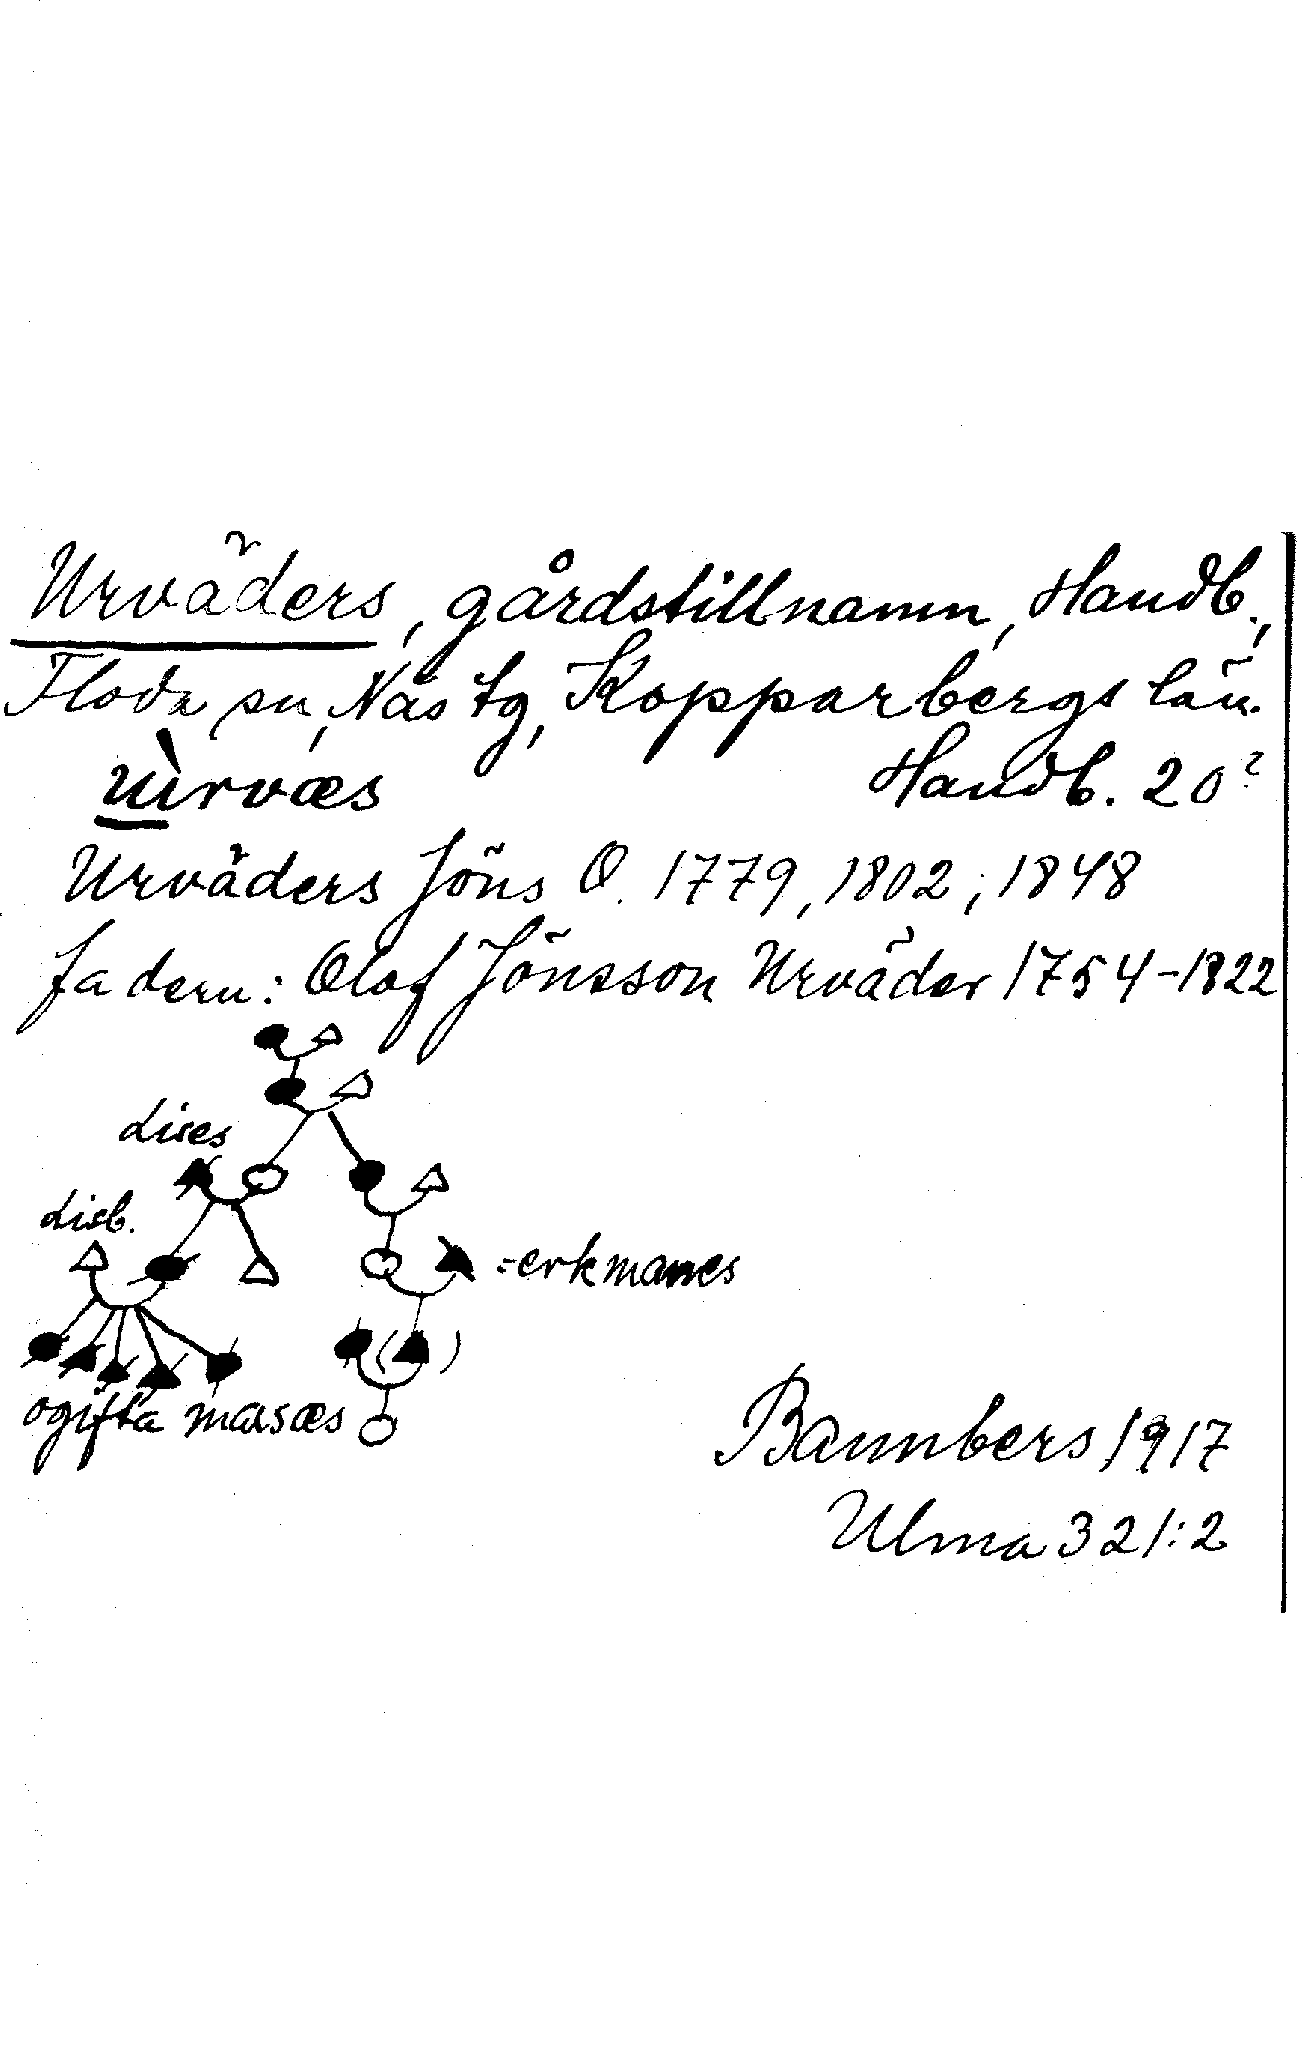 Urväders, gårdstillnamn, Handb.,
Floda sn, Nås tg, Kopparbergs län.
ɯ̀rvæs Handb. 20?
Urväders Jöns O. 1779, 1802; 1848
fadern: Olof Jönsson Urväder 1754-1822
dises
disb.
=erkmanes
ogifta masæs
Bannbers 1917
Ulma 321:2